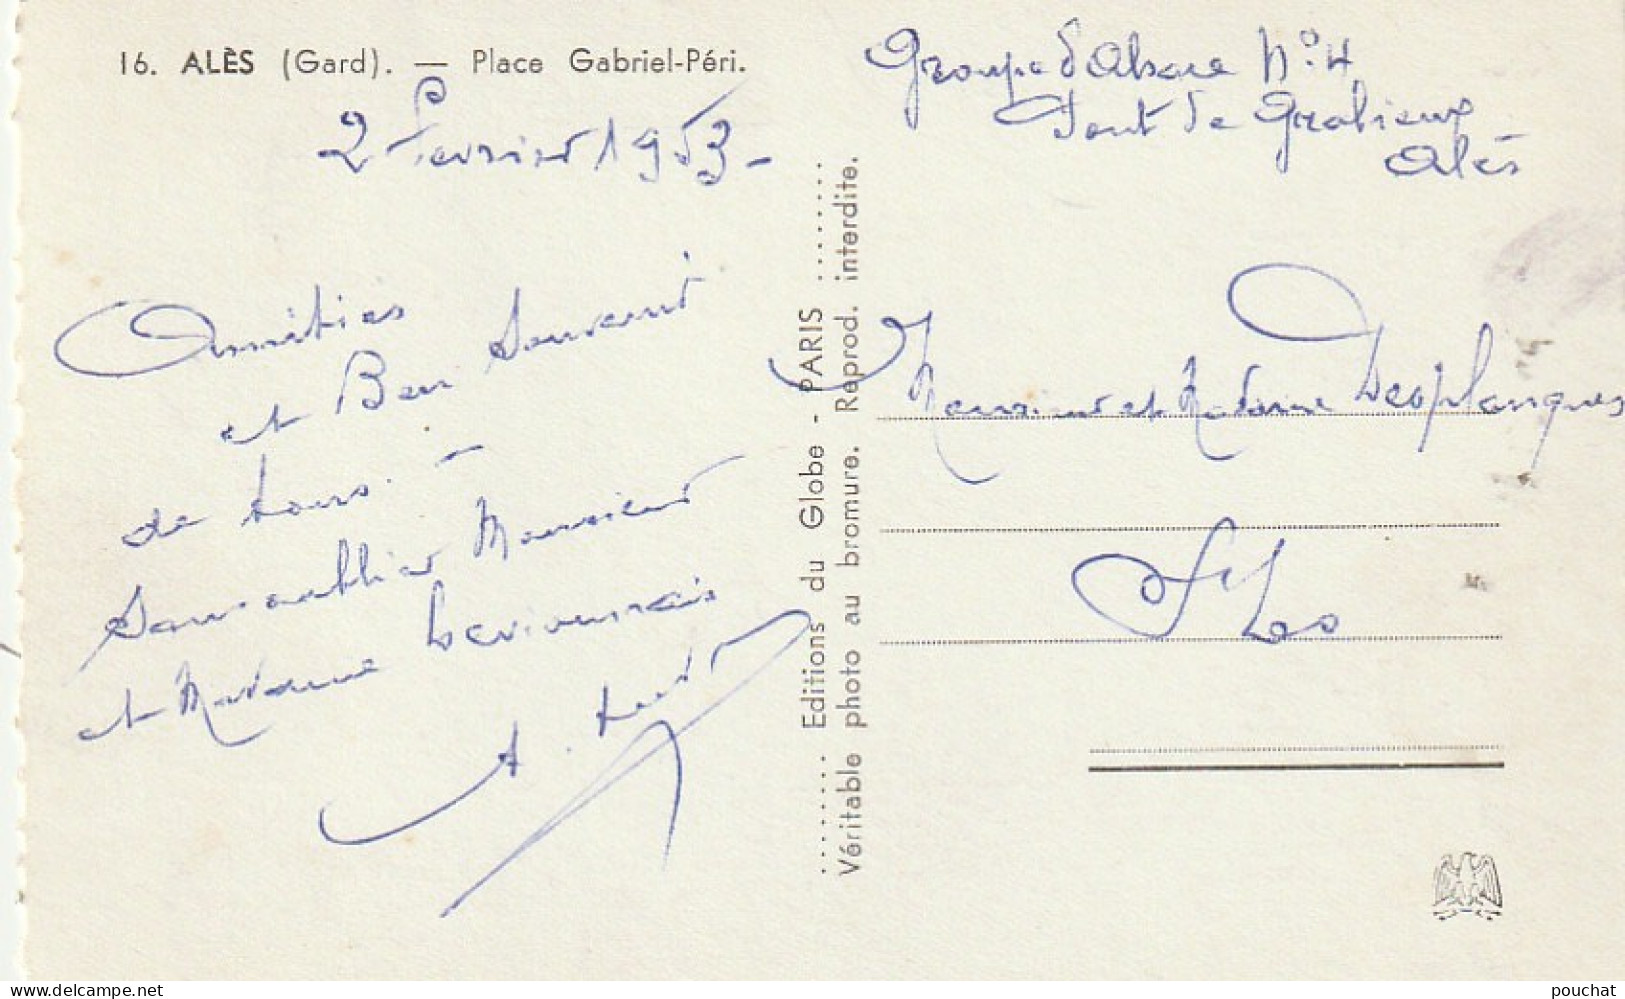 16. ALÈS (Gard). — Place Gabriel-Péri.
2 Fevrier 1953-
Amitiés
et Bon Souvenir
de tous. -
Sans oublier Monsieur
et Madame
A.
Editions du Globe - PARIS
Véritable photo au bromure. Reprod. interdite.
Groupe d'Alsace N° 4
Pont de Grabieux
Alès
Monsieur et Madame Desplanques
St Lo
www.delcampe.net
pouchat